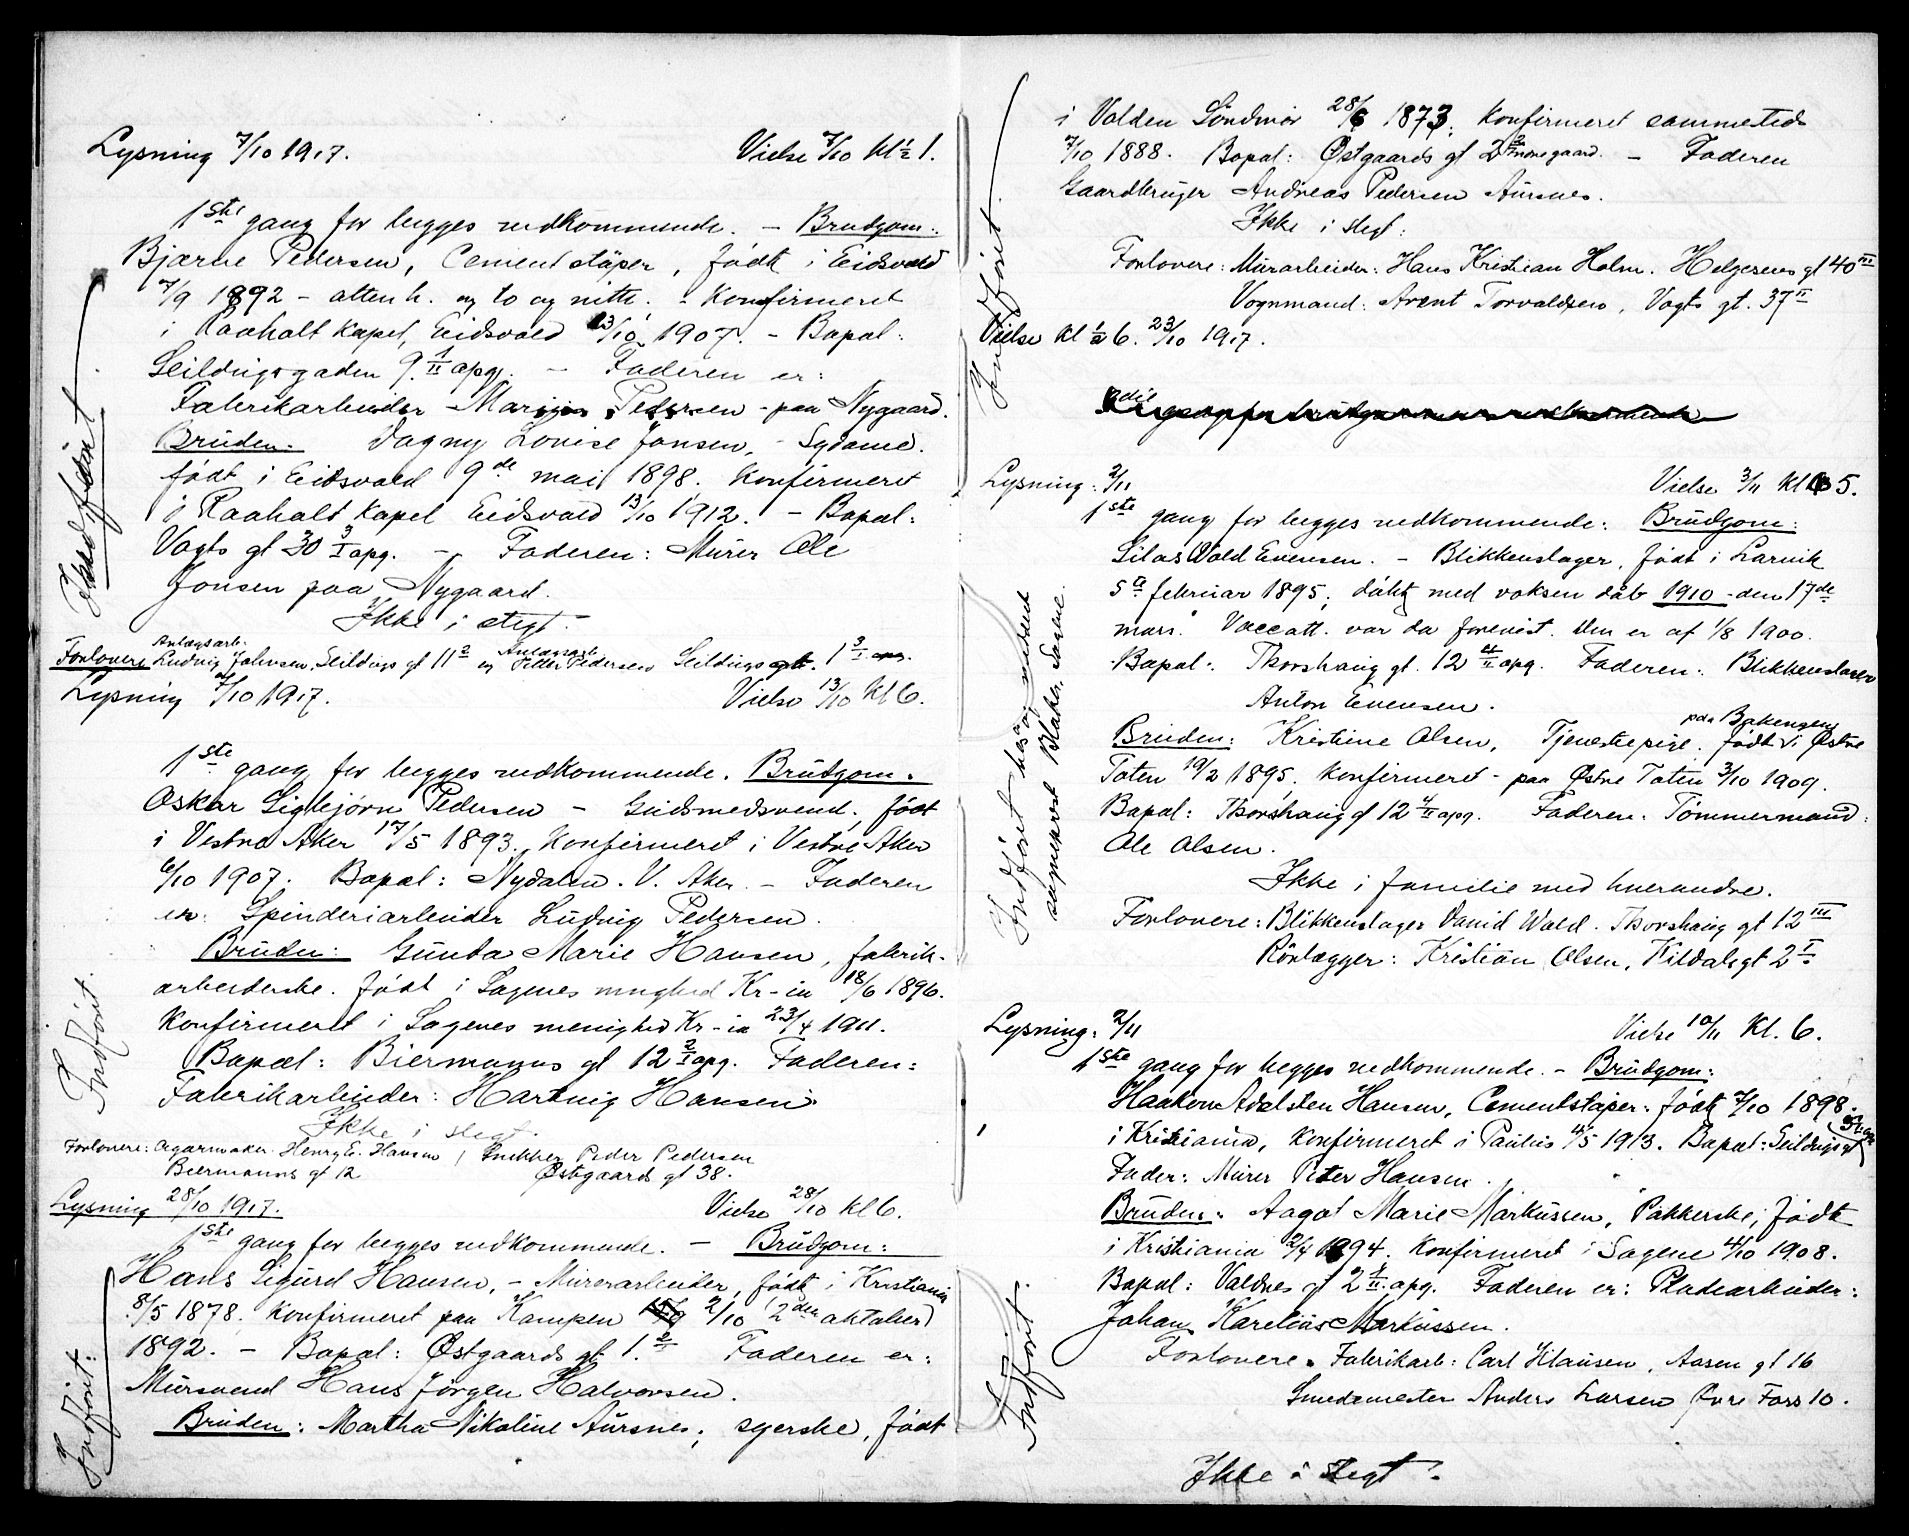 Lysning 7/10 1917. Vielse 7/10 Kl ½ 1.
1ste gang for begges vedkommende. – Brudgom:
Bjarne Pedersen, Cementstøper, født i Eidsvold
7/9 1892 – atten h. og to og nitti. – Konfirmeret
i Raaholt Kapel, Eidsvold 13/10 1907. – Bopæl:
Seildugsgaden 9. 1/II opg. – Faderen er:
Fabrikarbeider Pedersen – paa Nygaard.
Bruden: Dagny Lovise Jonsen, – Sydame.
født i Eidsvold 9de mai 1898. Konfirmeret
i Raaholt Kapel Eidsvold 13/10 1912. – Bopæl:
Vogts gt 30 3/I opg. – Faderen: Murer Ole
Jonsen paa Nygaard.
Ikke i slegt.
Indført
Forlovere Anlægsarb. Ludvig Johnsen, Seildugs gt 11 2 og Anlægsarb. Petter Pedersen Seildugsgt. 1 3/I opg.
Lysning 7/10 1917. Vielse 13/10 Kl 6.
1ste gang for begges vedkommende. Brudgom:
Oskar Sigbjørn Pedersen – Gudsmedsvend. født
i Vestre Aker 17/5 1893. Konfirmeret i Vestre Aker
6/10 1907. Bopæl: Nydalen. V. Aker. – Faderen
er: Spinderiarbeider Ludvig Pedersen.
Bruden: Gunda Marie Hansen, fabrik-
arbeiderske. født i Sagenes menighed Kr-ia 18/6 1896.
Konfirmeret i Sagenes menighed Kr-ia 23/4 1911.
Bopæl: Biermanns gt 12 2/I opg. Faderen:
Fabrikarbeider: Hartvig Hansen.
Ikke i slegt.
Indført.
Forlovere: Cigarmaker Henry E. Hansen / Snekker Peder Pedersen
Biermanns gt 12 Østgaards gt 38.
Lysning 28/10 1917. Vielse 28/10 Kl 6.
1ste gang for begges vedkommende. – Brudgom:
Hans Sigurd Hansen, – Murerarbeider, født i Kristiania
8/5 1878. Konfirmeret paa Kampen 2/10 (2den oktober)
1892. – Bopæl: Østgaards gt 1. 2 Faderen er:
Mursvend Hans Jørgen Halvorsen.
Bruden: Martha Nikoline Aursnes; syerske, født
Indført.
i Volden Søndmør 28/6 1873. Konfirmeret sammesteds
7/10 1888. Bopæl: Østgaards gt 2 – Faderen
Gaardbruger Andreas Pedersen Aursnes.
Ikke i slegt.
Forlovere: Murarbeider: Hans Kristian Holm. Helgesens gt 40 III
Vognmand: Arent Torvaldsen, Vogts gt. 37 II
Vielse Kl ½ 6. 23/10 1917.
Indført.
Lysning: 2/11 Vielse 3/11 Kl 5.
1ste gang for begges vedkommende: Brudgom:
Silas Wald Evensen. – Blikkenslager, født i Larvik
5te februar 1895; døbt med voksen dåb 1910 – den 17de
mars. Vaccatt. var da forevist. Den er af 1/8 1900.
Bopæl: Thorshaug gt. 12 4/II opg. Faderen: Blikkenslager
Anton Evensen.
Bruden: Kristine Olsen, Tjenestepige. født paa Bakengen i Østre
Toten 19/2 1895; Konfirmeret – paa Østre Toten 3/10 1909.
Bopæl: Thorshaug gt 12 4/II opg. Faderen: Tømmermand:
Ole Olsen.
Ikke i familie med hverandre.
Forlovere: Blikkenslager David Wald. Thorshaug gt 12 III
Rørlægger: Kristian Olsen, Kildals gt 2 I.
Lysning: 2/11 Vielse 10/11 Kl. 6.
1ste gang for begges vedkommende. – Brudgom:
Haakon Adelsten Hansen, Cementstøper. født 7/10 1898.
i Kristiania, Konfirmeret i Paulus 4/5 1913. Bopæl: Seildugs gt
Fader: Murer Peter Hansen.
Bruden: Aagot Marie Markussen, Pakkerske; født
i Kristiania 2/4 1894. Konfirmeret i Sagene 4/10 1908.
Bopæl: Valdres gt 2 II opg. Faderen er: Pladearbeider:
Johan Karelius Markussen.
Forlovere. Fabrikarb: Carl Klausen, Aasen gt 16
Smedemester Anders Larsen Øvre Foss 10.
Indført.
Ikke i slegt.